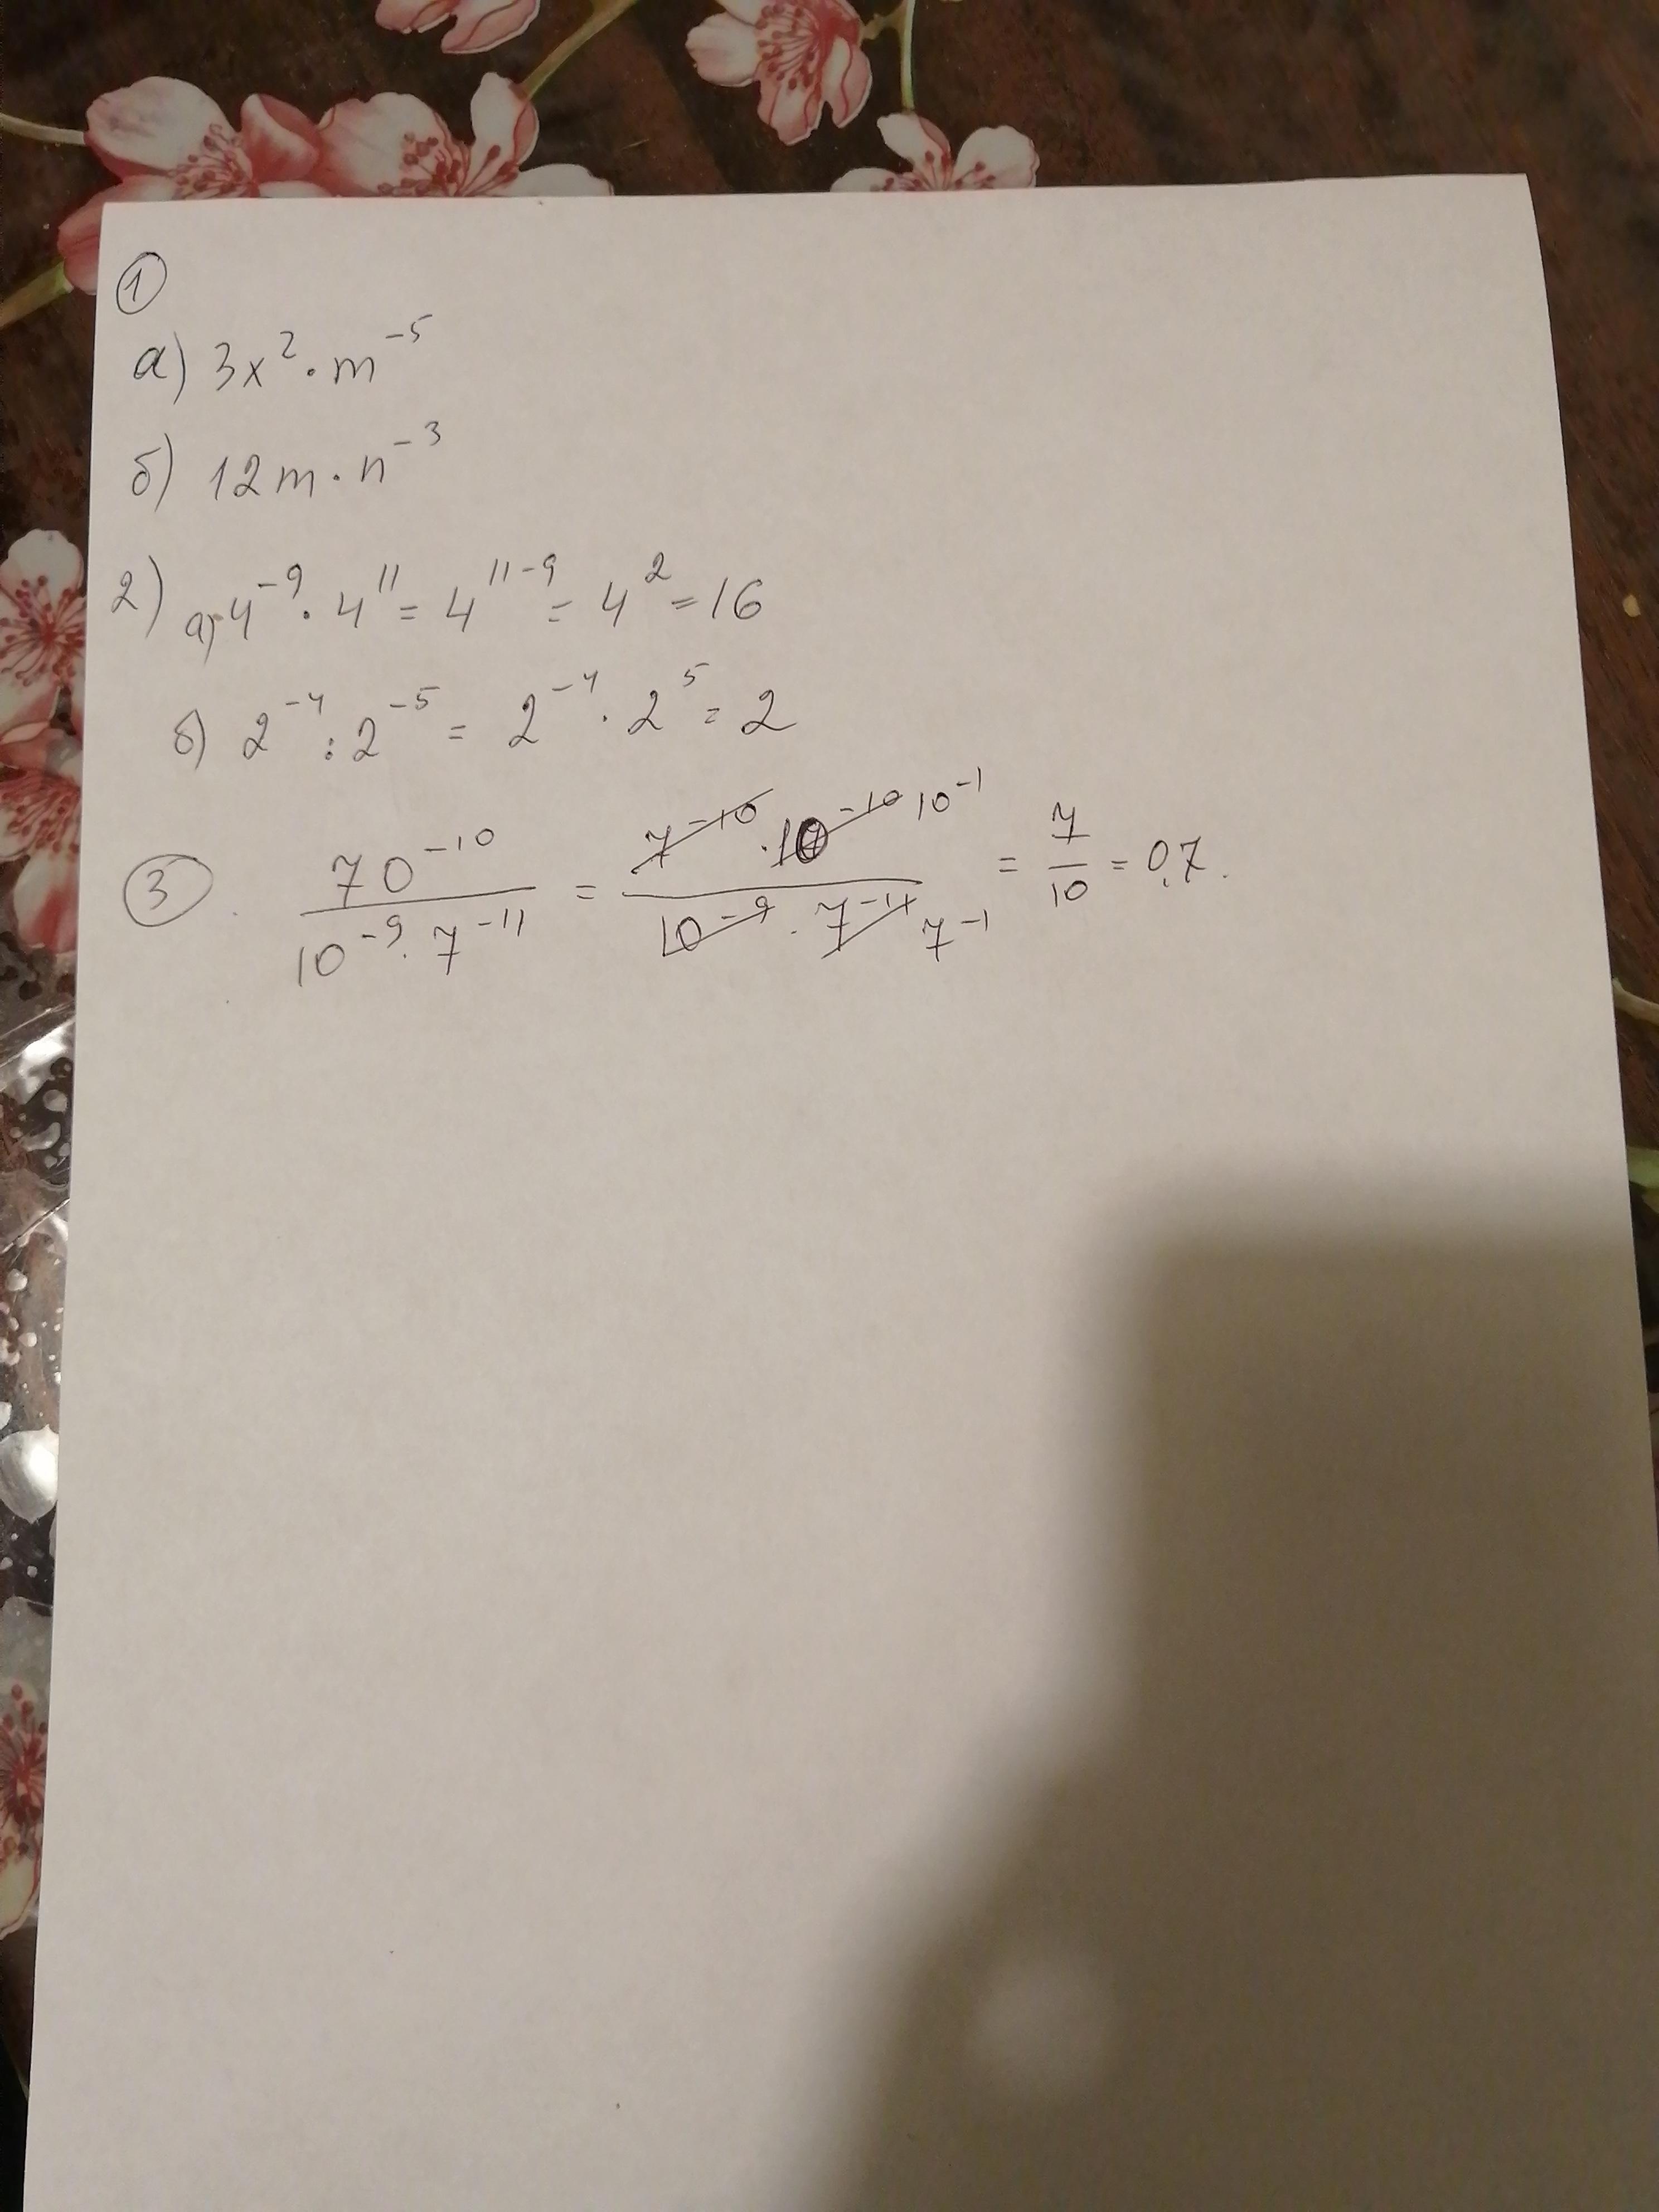 1
а) 3x² · m⁻⁵
б) 12m · n⁻³
2) а) 4⁻⁹ · 4¹¹ = 4¹¹⁻⁹ = 4² = 16
б) 2⁻⁴ : 2⁻⁵ = 2⁻⁴ · 2⁵ = 2
3 70⁻¹⁰ / 10⁻⁹ · 7⁻¹¹ = 7⁻¹⁰ · 10⁻¹⁰ 10⁻¹ / 10⁻⁹ · 7⁻¹¹ 7⁻¹ = 7/10 = 0,7.